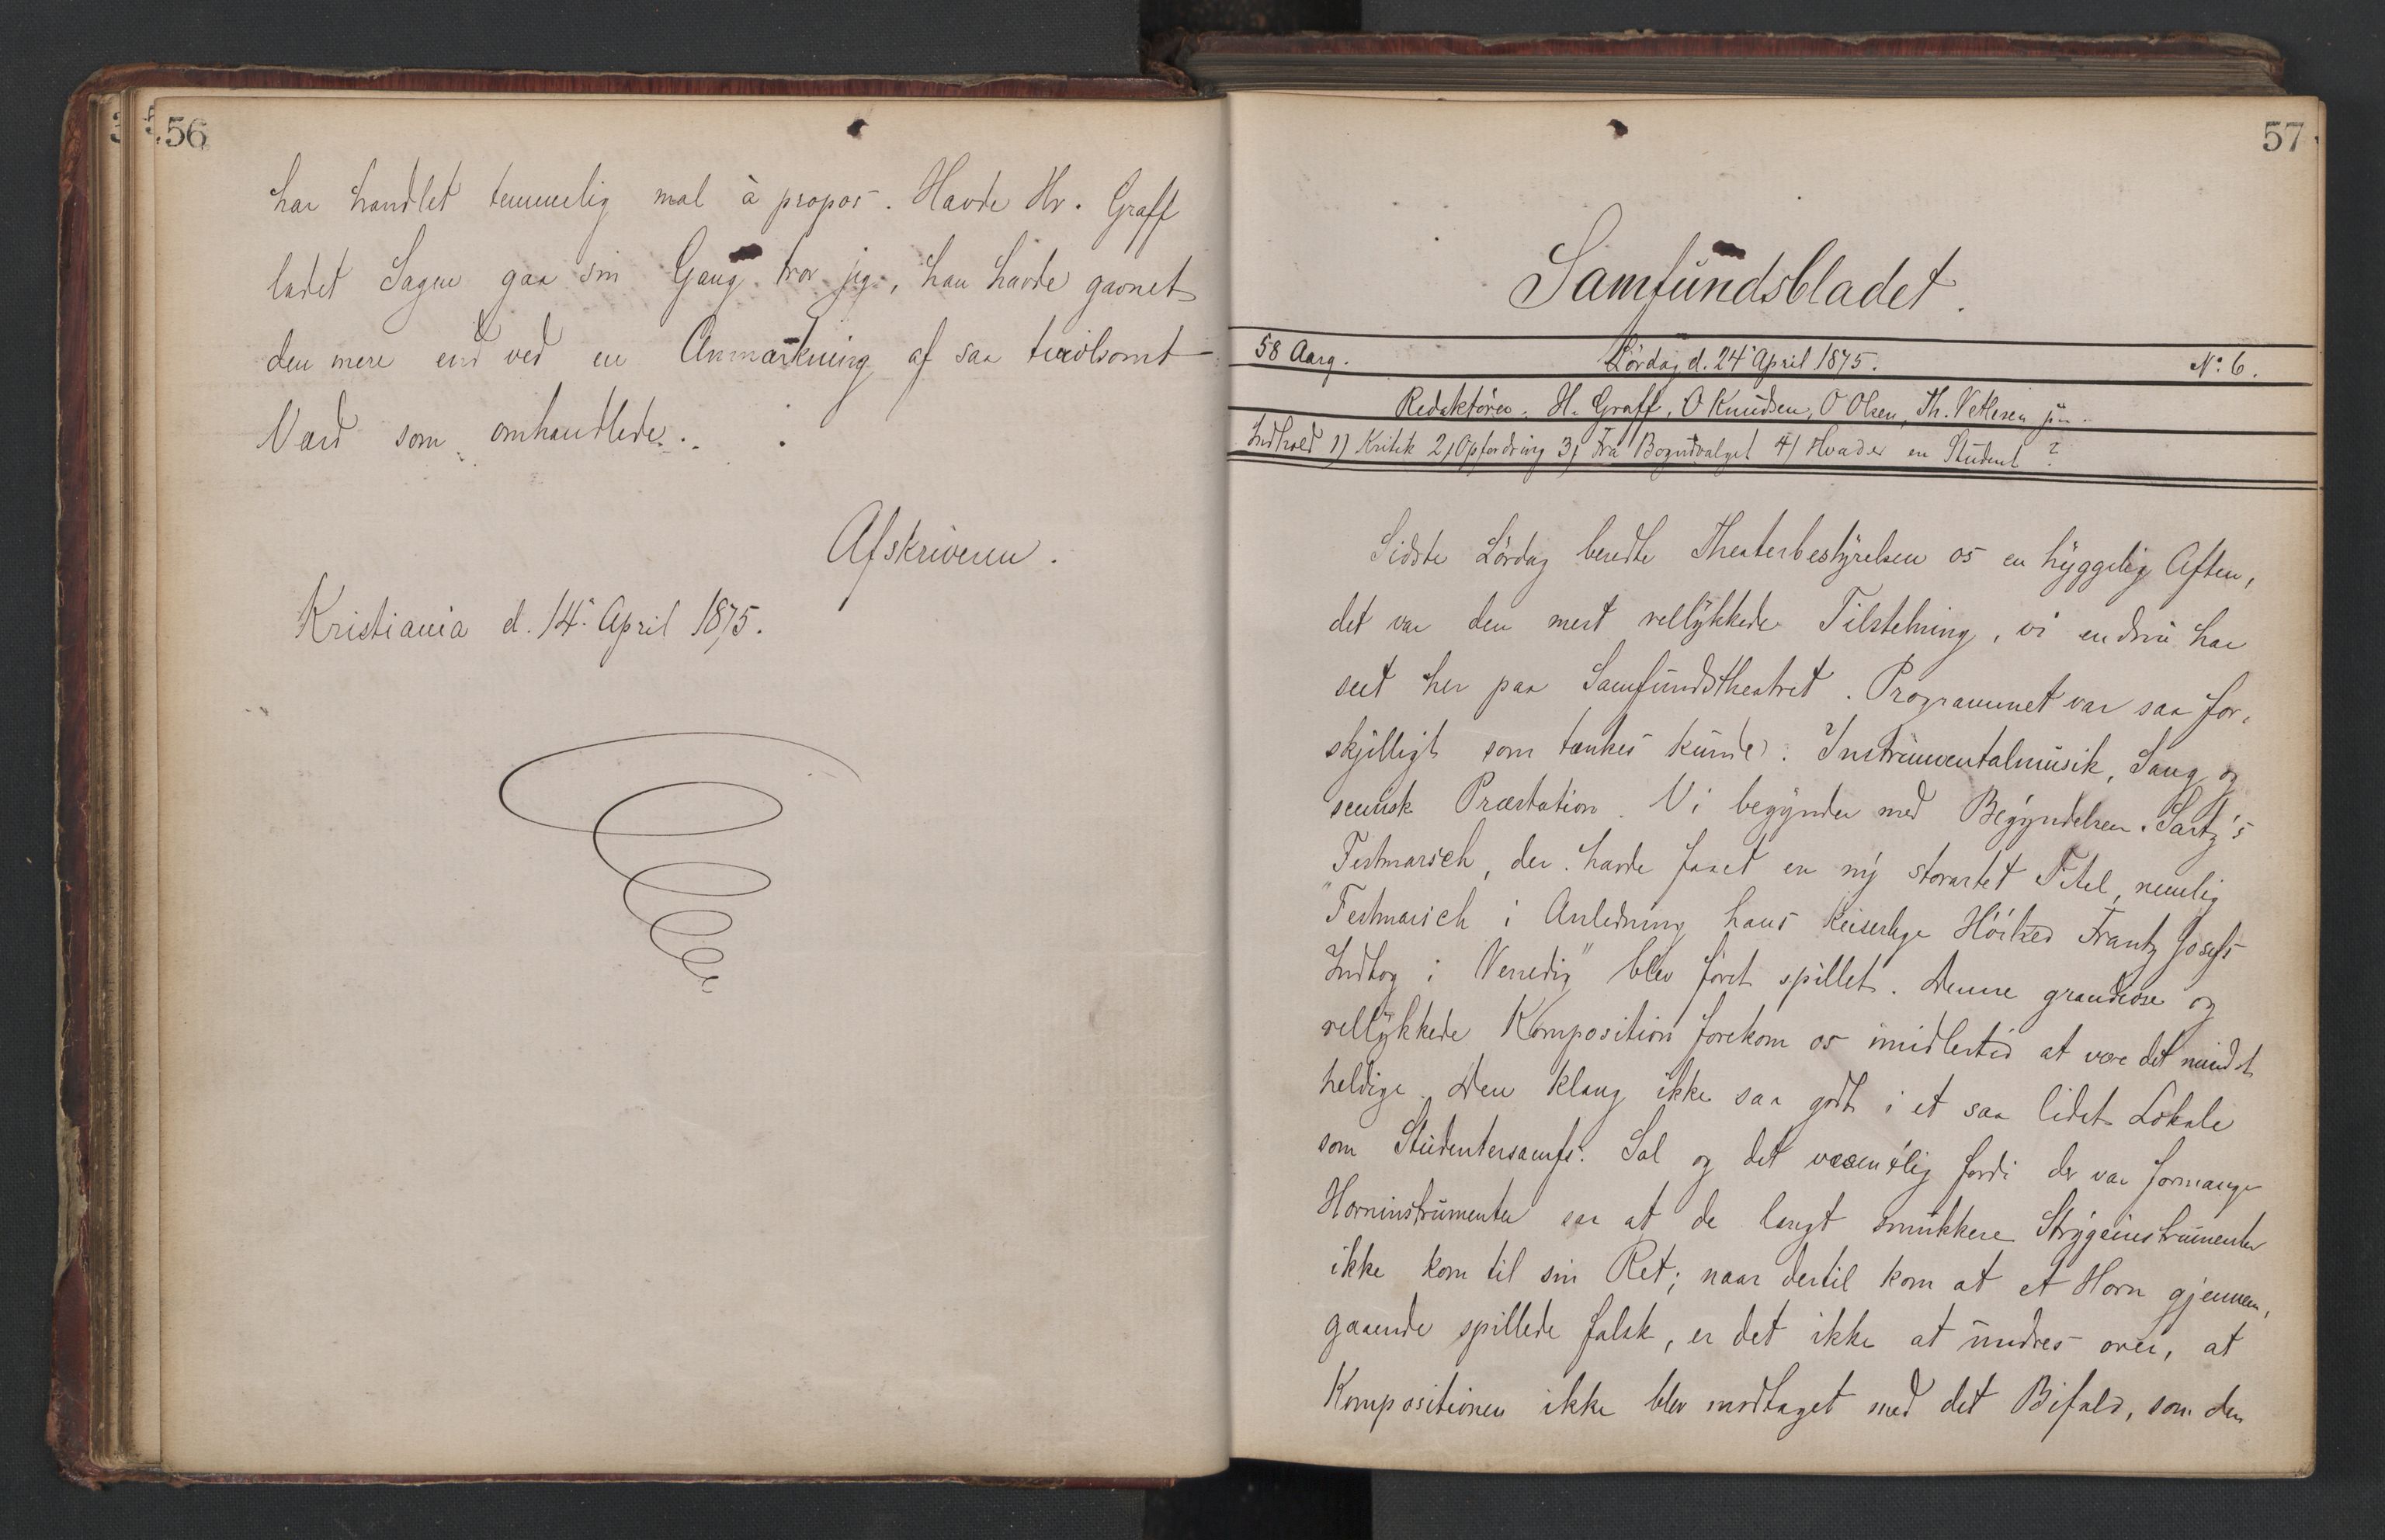 56
har handlet temmelig mal à propos. Havde Hr. Graff
ladet Sagen gaa sin Gang tror jeg, han havde gavnet
den mere end ved en Anmærkning af saa tvivlsomt
Værd som omhandlede.
Afskriveren.
Kristiania d. 14. April 1875.
57
Samfundsbladet.
58 Aarg. Lördag d. 24 April 1875. No: 6.
Redaktörer. H. Graff, O Knudsen, O Olsen, Th. Vetlesen jün.
Indhold 1) Kritik 2) Opfordring 3) Fra Bogudvalget 4) Hvad er en Student?
Sidste Lördag beredte Theaterbestyrelsen os en hyggelig Aften,
det var den mest vellykkede Tilstelning, vi endnu har
seet her paa Samfundstheatret. Programmet var saa for-
skjelligt som tænkes kunde: Instrumentalmusik, Sang og
scenisk Præstation. Vi begynder med Begyndelsen. Sartz's
Festmarsch, der havde faaet en ny storartet Titel, nemlig
"Festmarsch i Anledning hans Keiserlige Höihed Frantz Josefs
Indtog i Venedig" blev först spillet. Denne grandiose og
vellykkede Komposition forekom os imidlertid at være det mindst
heldige. Den klang ikke saa godt i et saa lidet Lokale
som Studentersamfs. Sal og det væsentlig fordi der var formange
Horninstrumenter saa at de langt smukkere Strygeinstrumenter
ikke kom til sin Ret; naar dertil kom at et Horn gjennem-
gaaende spillede falsk, er det ikke at undres over, at
Kompositionen ikke blev modtaget med det Bifald, som den